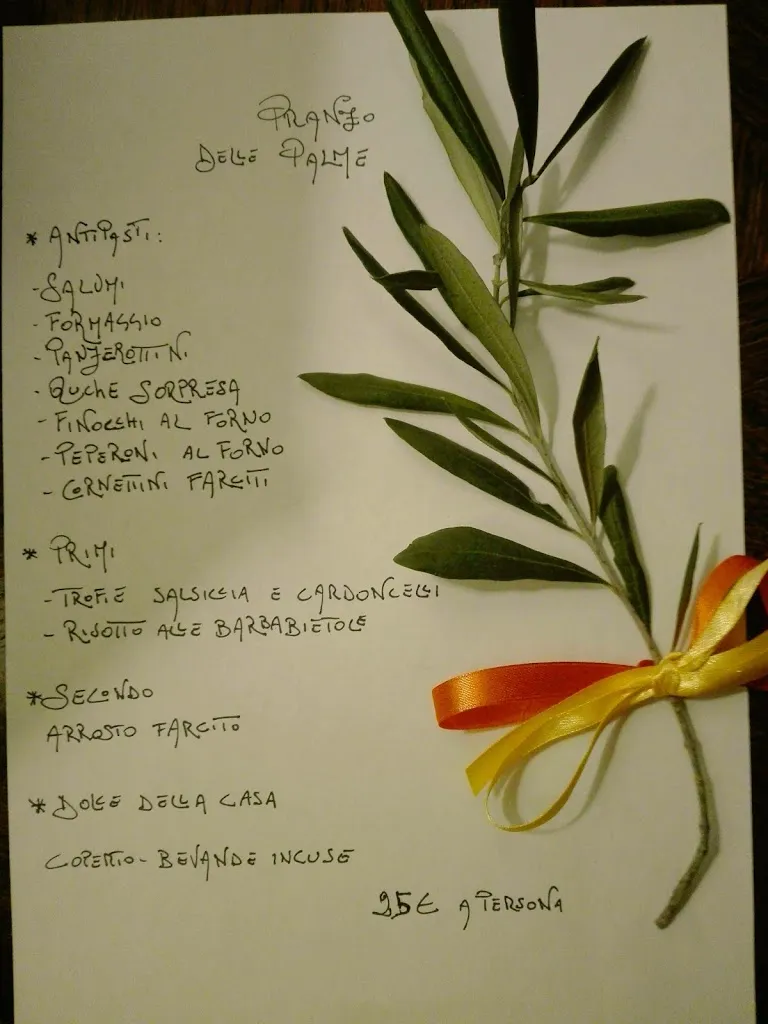 PRANZO
DELLE PALME
* ANTIPASTI:
- SALUMI
- FORMAGGIO
- PANZEROTTINI
- QUCHE SORPRESA
- FINOCCHI AL FORNO
- PEPERONI AL FORNO
- CORNETTINI FARCITI
* PRIMI
- TROFIE SALSICCIA E CARDONCELLI
- RISOTTO ALLE BARBABIETOLE
* SECONDO
ARROSTO FARCITO
* DOLCE DELLA CASA
COPERTO - BEVANDE INCLUSE
25€ A PERSONA